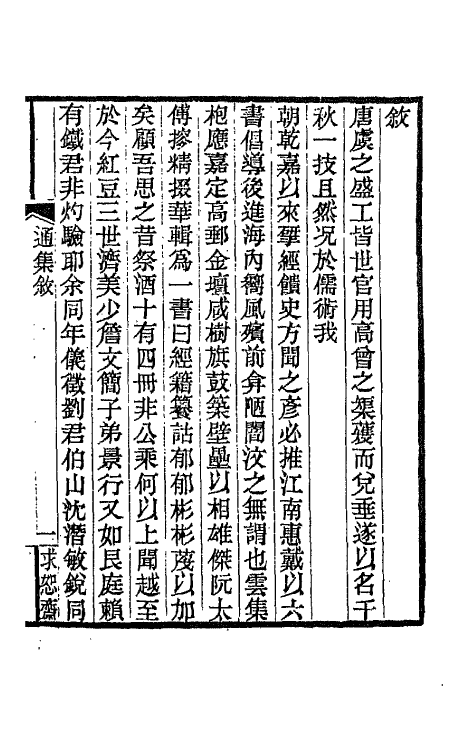 敘
唐虞之盛工皆世官用高曾之榘矱而兌垂遂以名千
秋一技且然況於儒術我
朝乾嘉以來揅經饋史方聞之彥必推江南惠戴以六
書倡導後進海內嚮風殯前弇陋闇汶之無謂也雲集
枹應嘉定高郵金壇咸樹旗鼓築壁壘以相雄傑阮太
傅摉精掇華輯為一書曰經籍籑詁郁郁彬彬蔑以加
矣顧吾思之昔祭酒十有四冊非公乘何以上聞越至
於今紅豆三世濟美少詹文簡子弟景行又如艮庭賴
有鐵君非灼驗耶余同年儀徵劉君伯山沈潛敏銳同
通集敘
一
求恕齋